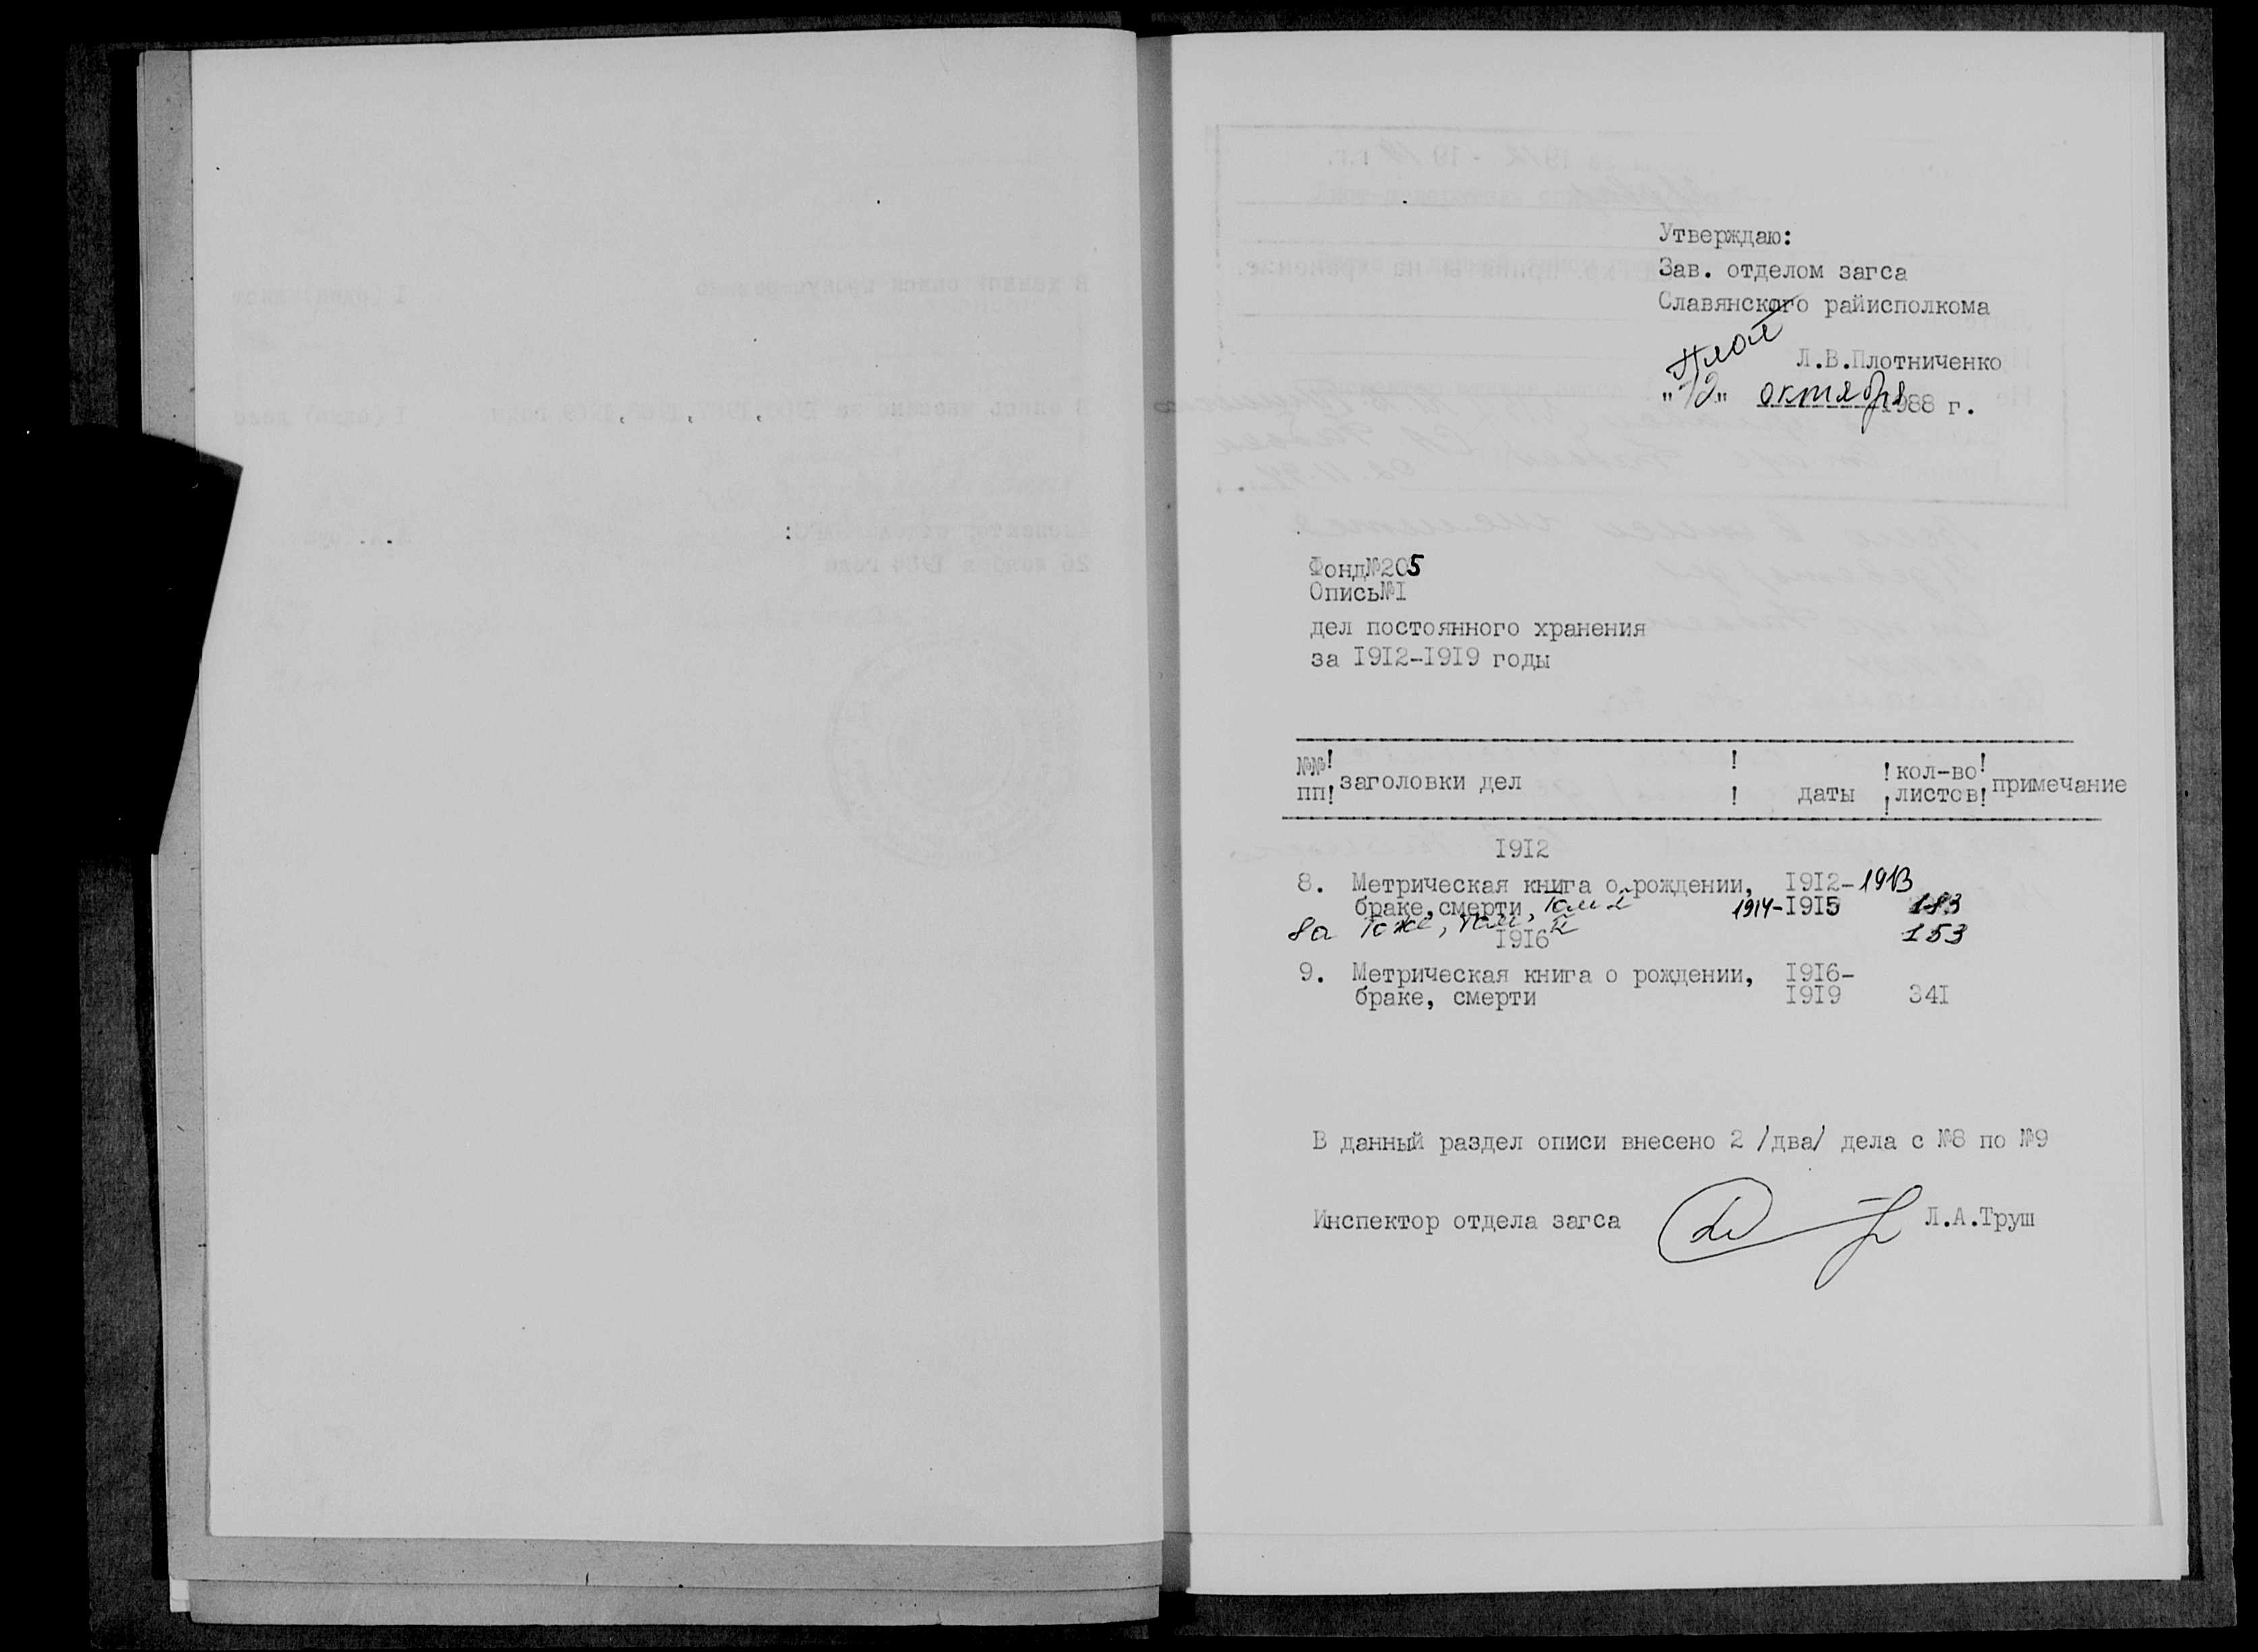 Утверждаю:
Зав. отделом загса
Славянского райисполкома
Плот
Л.В.Плотниченко
"12" октября 1988 г.
Фонд№205
Опись№I
дел постоянного хранения
за I9I2-I9I9 годы
№№! заголовки дел ! даты !кол-во! примечание
пп! ! !листов!
I9I2
8. Метрическая книга о рождении, I9I2-1913
браке, смерти, том I 1914-I9I5 183
8а То же, том II 153
I9I6
9. Метрическая книга о рождении, I9I6-
браке, смерти I9I9 34I
В данный раздел описи внесено 2 /два/ дела с №8 по №9
Инспектор отдела загса Л.А.Труш